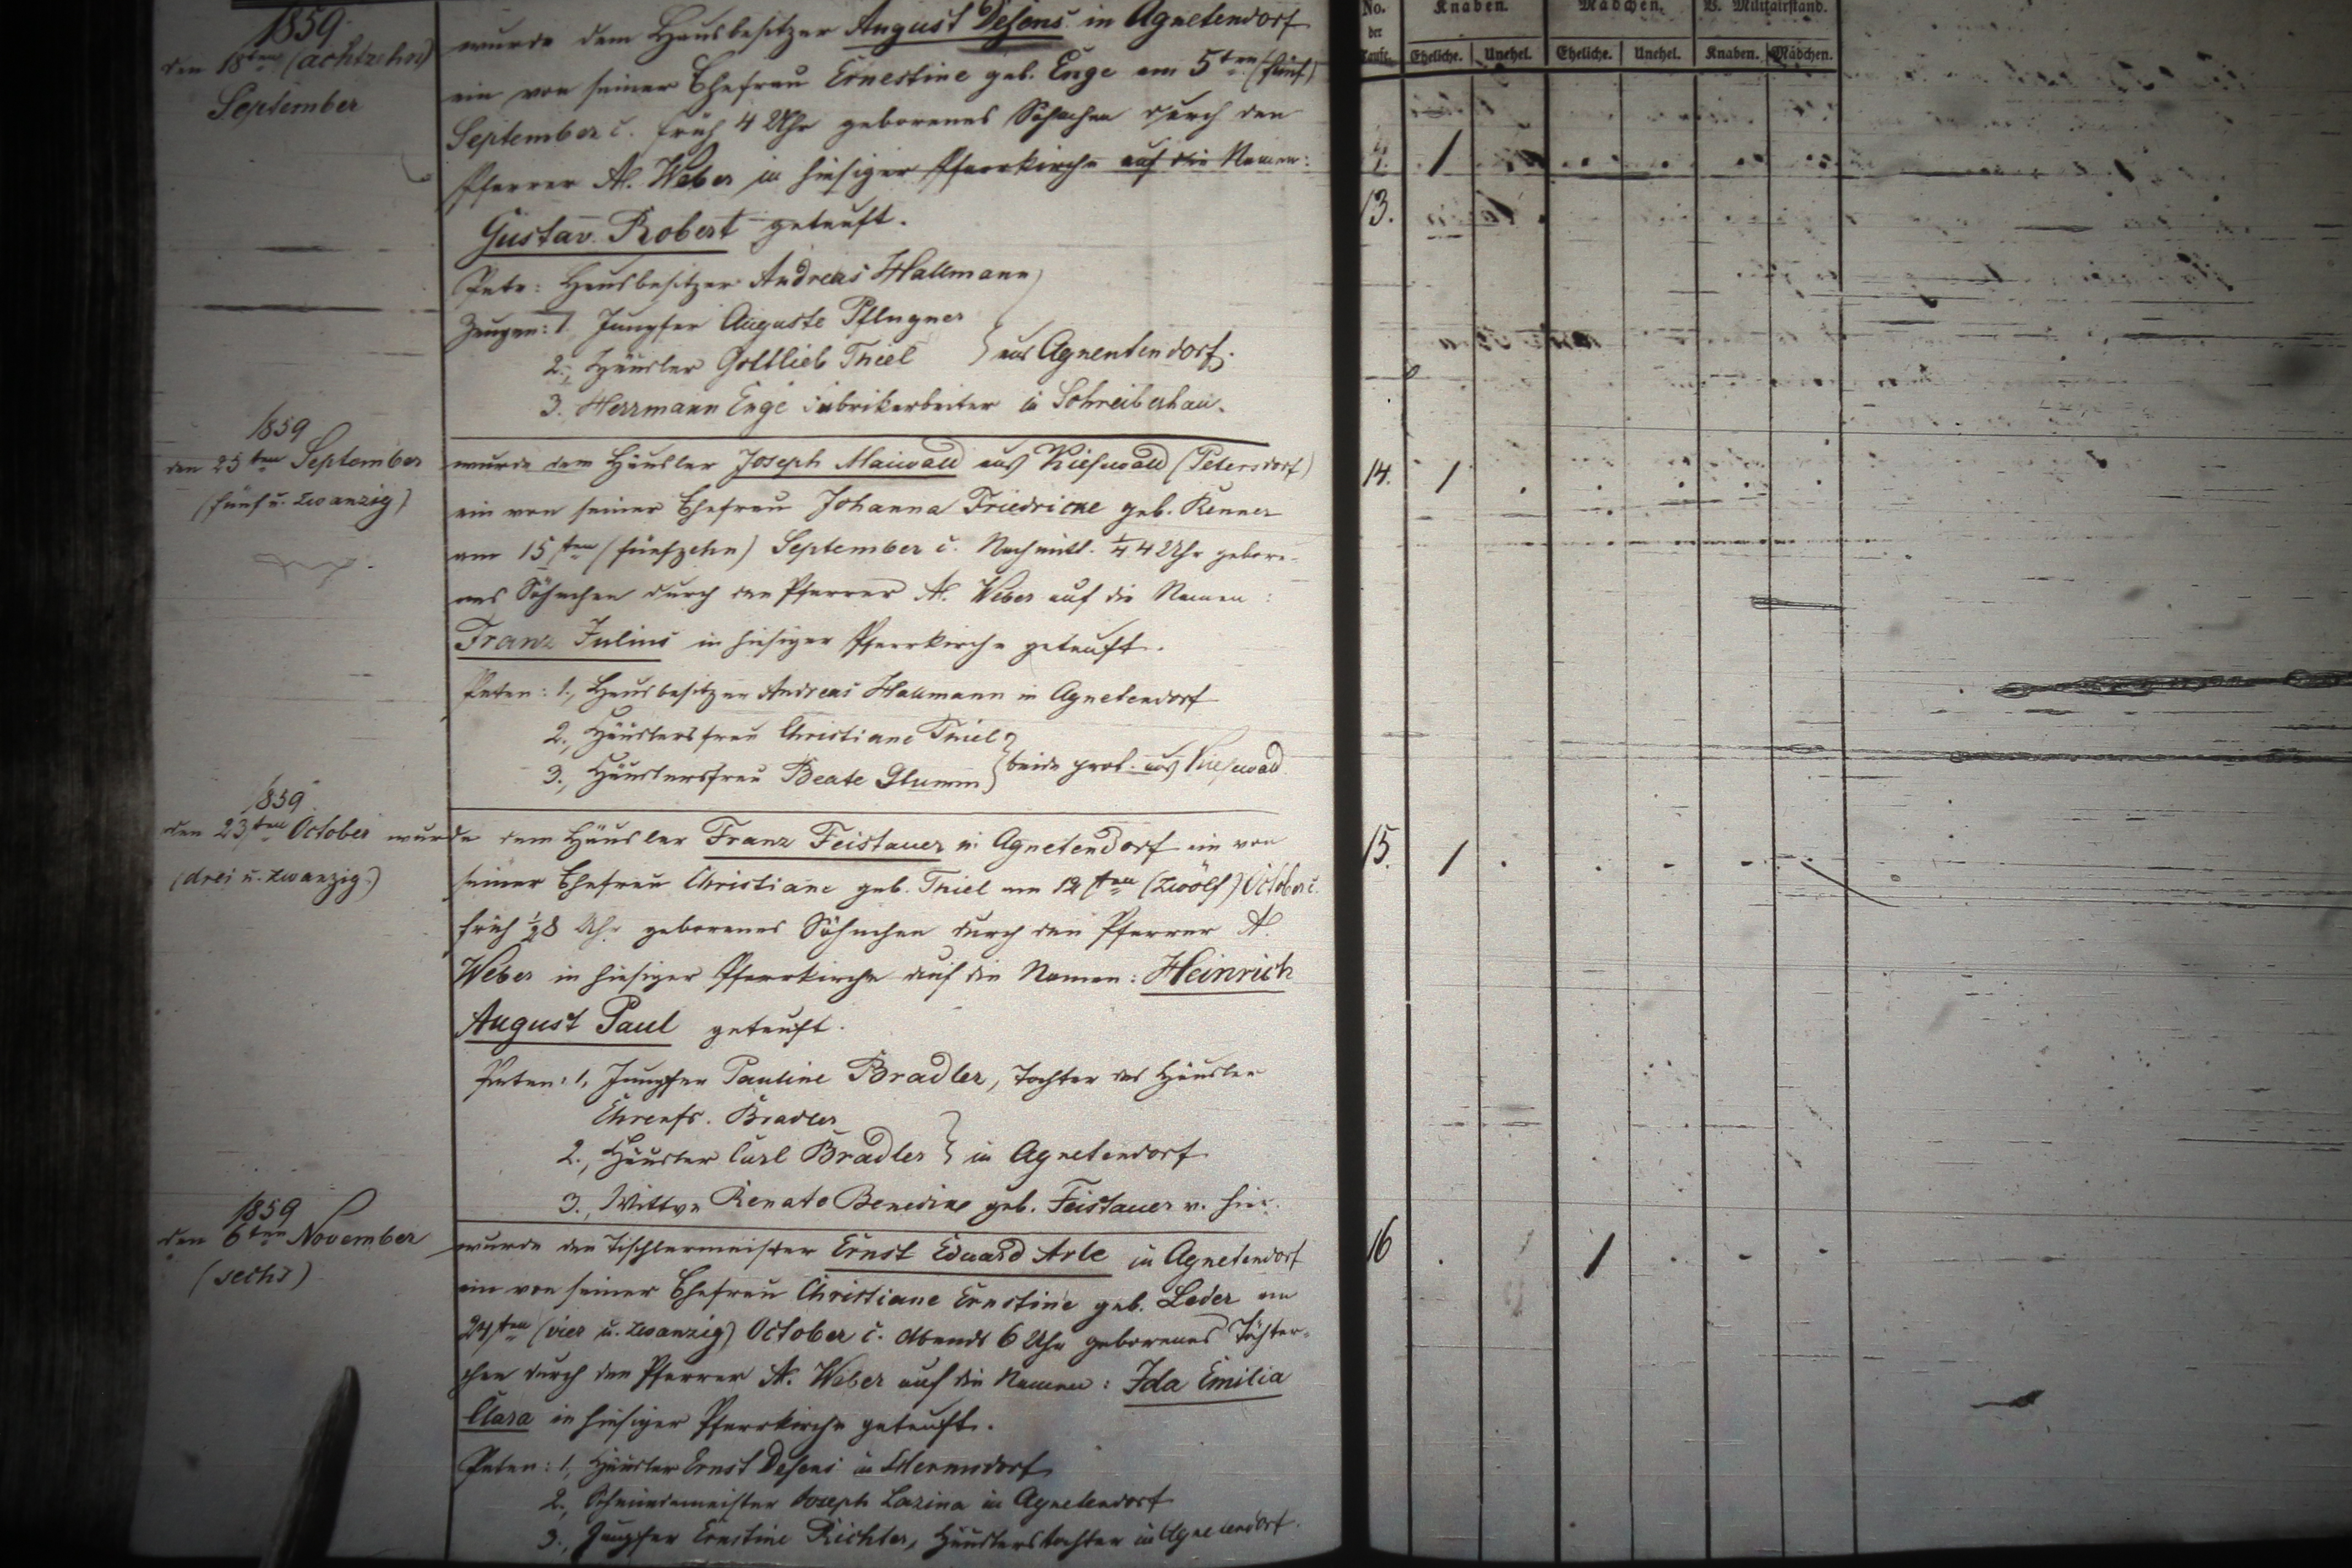 1859.
den 18ten (achtzehn)
September
wurde dem Hausbesitzer August Desens in Agnetendorf
ein von seiner Ehefrau Ernestine geb. Enge am 5ten (fünf)
September c. früh 4 Uhr geborenes Söhnchen durch den
Pfarrer A. Weber in hiesiger Pfarrkirche auf die Namen:
Gustav Robert getauft.
Pate: Hausbesitzer Andreas Hallmann
Zeugen: 1. Jungfer Auguste Pflugner
2., Häusler Gottlieb Thiel } aus Agnentendorf.
3. Herrmann Enge Fabrikarbeiter in Schreiberhau.
1859
den 25ten September
(fünf u. zwanzig)
wurde dem Häusler Joseph Maiwald aus Kiesewald (Petersdorf)
ein von seiner Ehefrau Johanna Friedricke geb. Renner
am 15ten (fünfzehn) September c. Nachmitt. 1/4 4 Uhr gebore-
nes Söhnchen durch den Pfarrer A. Weber auf die Namen:
Franz Julius in hiesiger Pfarrkirche getauft.
Paten: 1., Hausbesitzer Andreas Hallmann in Agnetendorf
2., Häuslersfrau Christiane Thiel
3., Häuslersfrau Beate Glumm } beide prot. aus Kiesewald
1859
den 23ten October
(drei u. zwanzig.)
wurde dem Häusler Franz Feistauer in Agnetendorf ein von
seiner Ehefrau Christiane geb. Thiel am 12ten (zwölf) October c.
früh 1/2 8 Uhr geborenes Söhnchen durch den Pfarrer A.
Weber in hiesiger Pfarrkirche auf die Namen: Heinrich
August Paul getauft.
Paten: 1, Jungfer Pauline Bradler, Tochter des Häusler
Ehrenfr. Bradler
2., Häusler Carl Bradler } in Agnetendorf
3., Wittwe Renate geb. Feistauer v. hier.
1859
den 6ten November
(sechs)
wurde dem Tischlermeister Ernst Eduard Arle in Agnetendorf
ein von seiner Ehefrau Christiane Ernstine geb. Leder am
24ten (vier u. zwanzig) October c. Abends 6 Uhr geborenes Töchter-
chen durch den Pfarrer A. Weber auf die Namen: Ida Emilia
Clara in hiesiger Pfarrkirche getauft.
Paten: 1, Häusler Ernst Desens in Hermsdorf
2., Schmiedemeister Joseph Lazina in Agnetendorf
3., Jungfer Ernstine Richter, Häuslerstochter in Agnetendorf.
No. der Taufe. Knaben. Mädchen. B. Militairstand.
Eheliche. Unehel. Eheliche. Unehel. Knaben. Mädchen.
13.
14.
15.
16